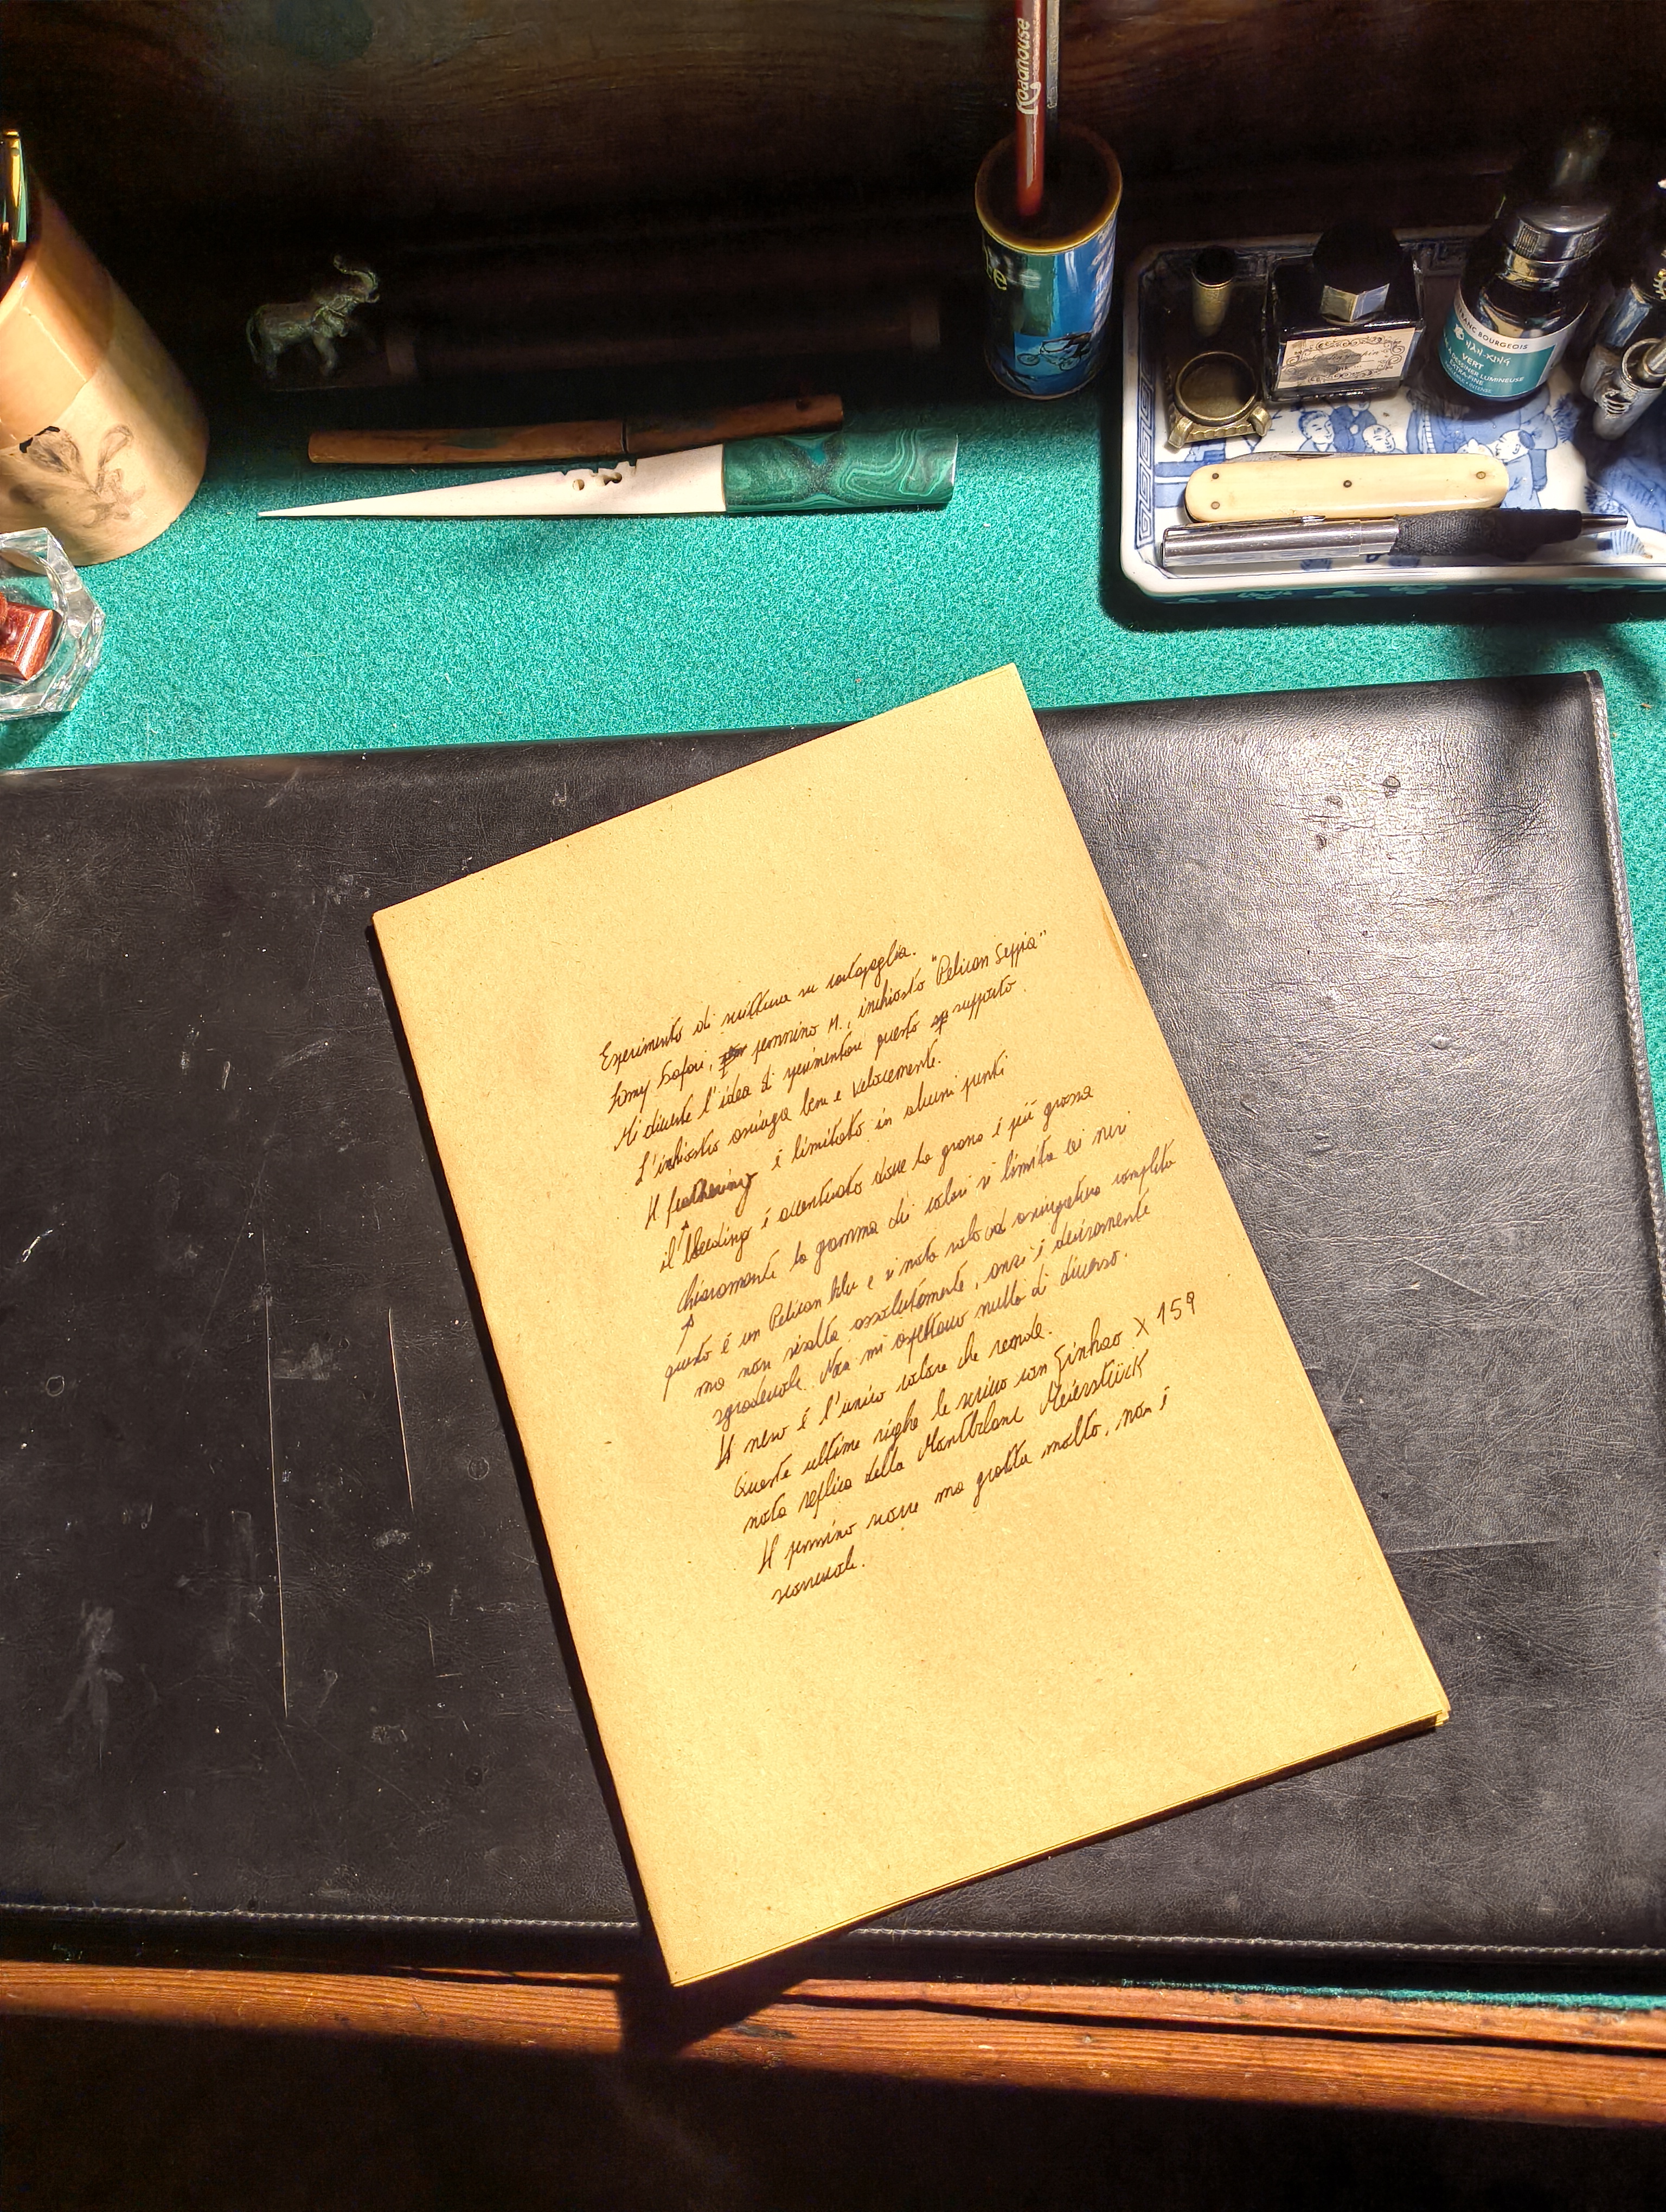 Roadhouse
FRANC BOURGEOIS
NAN-KING
VERT
DESSINER LUMINEUSE
EXTRA-FINE
Esperimento di scrittura su cartapaglia.
Lamy Safari, pennino M., inchiostro "Pelican Seppia"
Mi diverte l'idea di sperimentare questo supporto.
L'inchiostro asciuga bene e velocemente.
Il feathering è limitato in alcuni punti
il bleeding è accentuato dove la grana è più grossa
chiaramente la gamma dei colori si limita ai neri
questo è un Pelican blu e si nota solo ad asciugatura completa
ma non risalta assolutamente, anzi è decisamente
sgradevole. Non mi aspettavo nulla di diverso.
Il nero è l'unico colore che rende.
Queste ultime righe le scrivo con Jinhao X 159
nota replica della Montblanc Meierstück
Il pennino scorre ma gratta molto, non è
scorrevole.